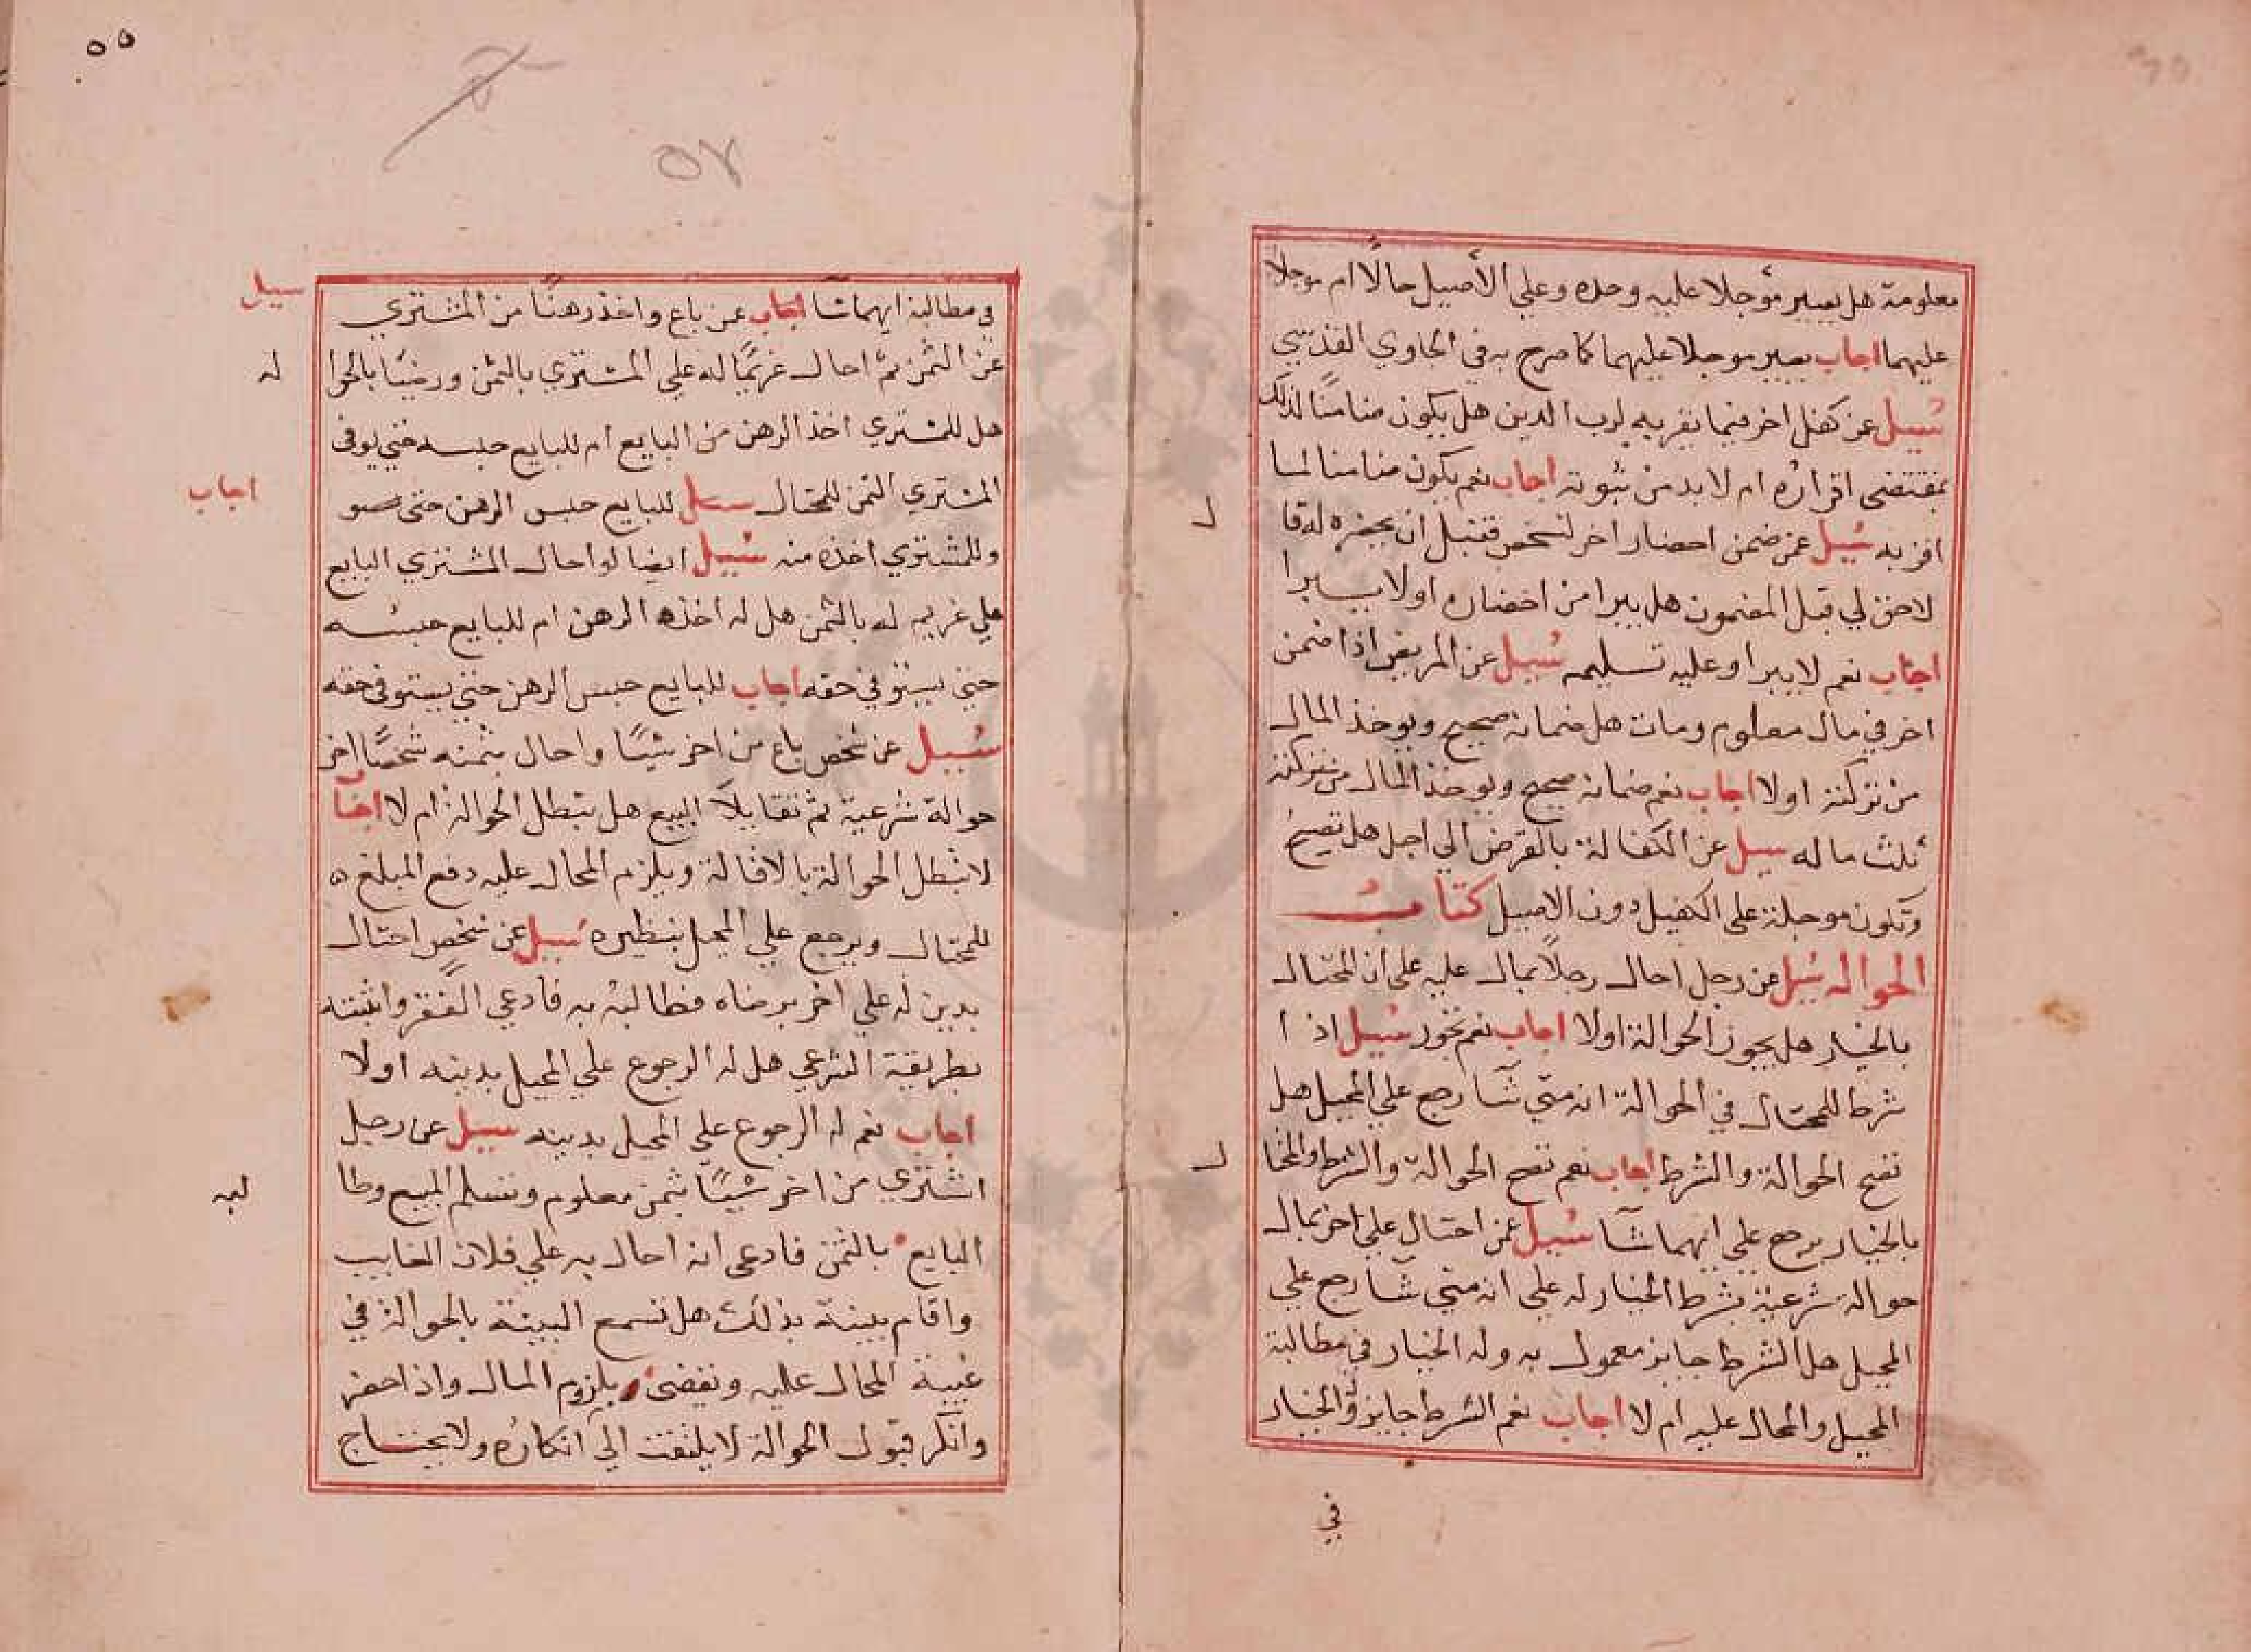 معلومة هل يصير مؤجلا عليه وحده وعلي الأصيل حالًا ام موجلا
عليهما اجاب يصير موجلا عليهما كما صرح به في الحاوي القدسي
سيل عن كفل اخر فيما يقر به لرب الدين هل يكون ضامنًا لذلك
بمقتضي اقراره ام لا بد من ثبوته اجاب نعم يكون ضامنا لما
اقر به سيل عن ضمن احضار اخر لشخص فقبل ان يحضره له قا ل
لا حق لي قبل المضمون هل يبرا من احضاره او لا يبرا
اجاب نعم لا يبرا وعليه تسليمه سيل عن المريض اذا ضمن
اخر في مال معلوم ومات هل ضمانه صحيح ويوخذ المال
من تركته اولا اجاب نعم ضمانه صحيح ويوخذ المال من تركته
ثلث ماله سيل عن الكفالة بالقرض الي اجل هل تصح
وتكون موجلة على الكفيل دون الاصيل كتاب
الحواله سيل عن رجل احال رجلًا بمال عليه على ان المحتال
بالخيار هل يجوز الحوالة اولا اجاب نعم تجوز سيل اذا
شرط للمحتال في الحوالة انه متي شآ رجع علي المحيل هل
تصح الحوالة والشرط اجاب نعم تصح الحوالة والشرط والمحتا ل
بالخيار يرجع علي ايهما شآ سيل عن احتال علي اخر بمال
حوالة شرعية بشرط الخيار له علي انه متي شآ رجع علي
المحيل هل الشرط جايز معمول به وله الخيار في مطالبة
المحيل والمحال عليه ام لا اجاب نعم الشرط جايز وله الخيار
في
٥٥
٥٧
في مطالبة ايهما شآ اجاب عمن باع واخذ رهنًا من المشتري سيل
عن الثمن ثم احال غريمًا له علي المشتري بالثمن ورضيا بالحوا له
هل للمشتري اخذ الرهن من البايع ام للبايع حبسه حتي يوفي
المشتري الثمن للمحتال سيل للبايع حبس الرهن حتى اجاب
وللمشتري اخذه منه سيل ايضا لو احال المشتري البايع
علي غريم له بالثمن هل له اخذه الرهن ام للبايع حبسه
حتي يستوفي حقه اجاب للبايع حبس الرهن حتي يستوفي حقه
سيل عن شخص باع من اخر شيئًا واحال بثمنه شخصًا اخر
حوالة شرعية ثم تقايلا البيع هل تبطل الحوالة ام لا اجاب
لا تبطل الحوالة بالاقالة ويلزم المحال عليه دفع المبلغ
للمحتال ويرجع علي المحيل بنظيره سيل عن شخص احتال
بدين له علي اخر برضاه فطالبه به فادعي الفقر واثبته
بطريقة الشرعي هل له الرجوع علي المحيل بدينه اولا
اجاب نعم له الرجوع علي المحيل بدينه سيل عن رجل
اشتري من اخر شيئًا بثمن معلوم وتسلم المبيع وطا لبه
البايع بالثمن فادعى انه احال به علي فلان الغايب
واقام بينة بذلك هل تسمع البينة بالحوالة في
غيبة المحال عليه ونقضى بلزوم المال واذا حضر
وانكر قبول الحوالة لا يلتفت الي انكاره ولا يحتاج